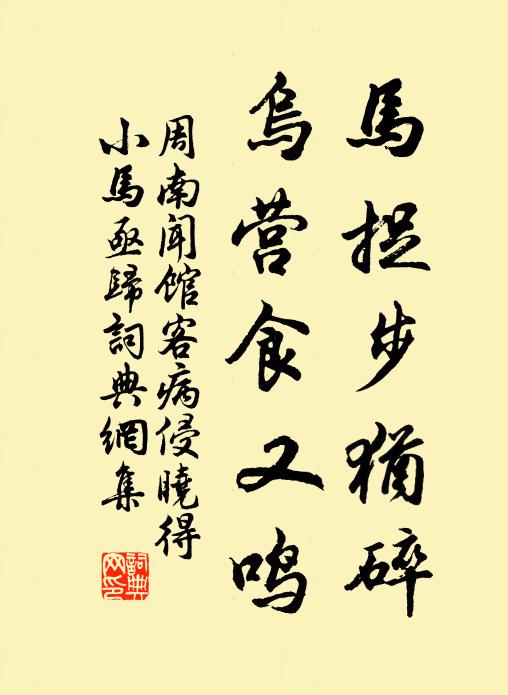 馬捉步猶碎
烏营食又鸣
周南闻馆客病侵曉得
小馬亟歸詞典網集
詞典
网印